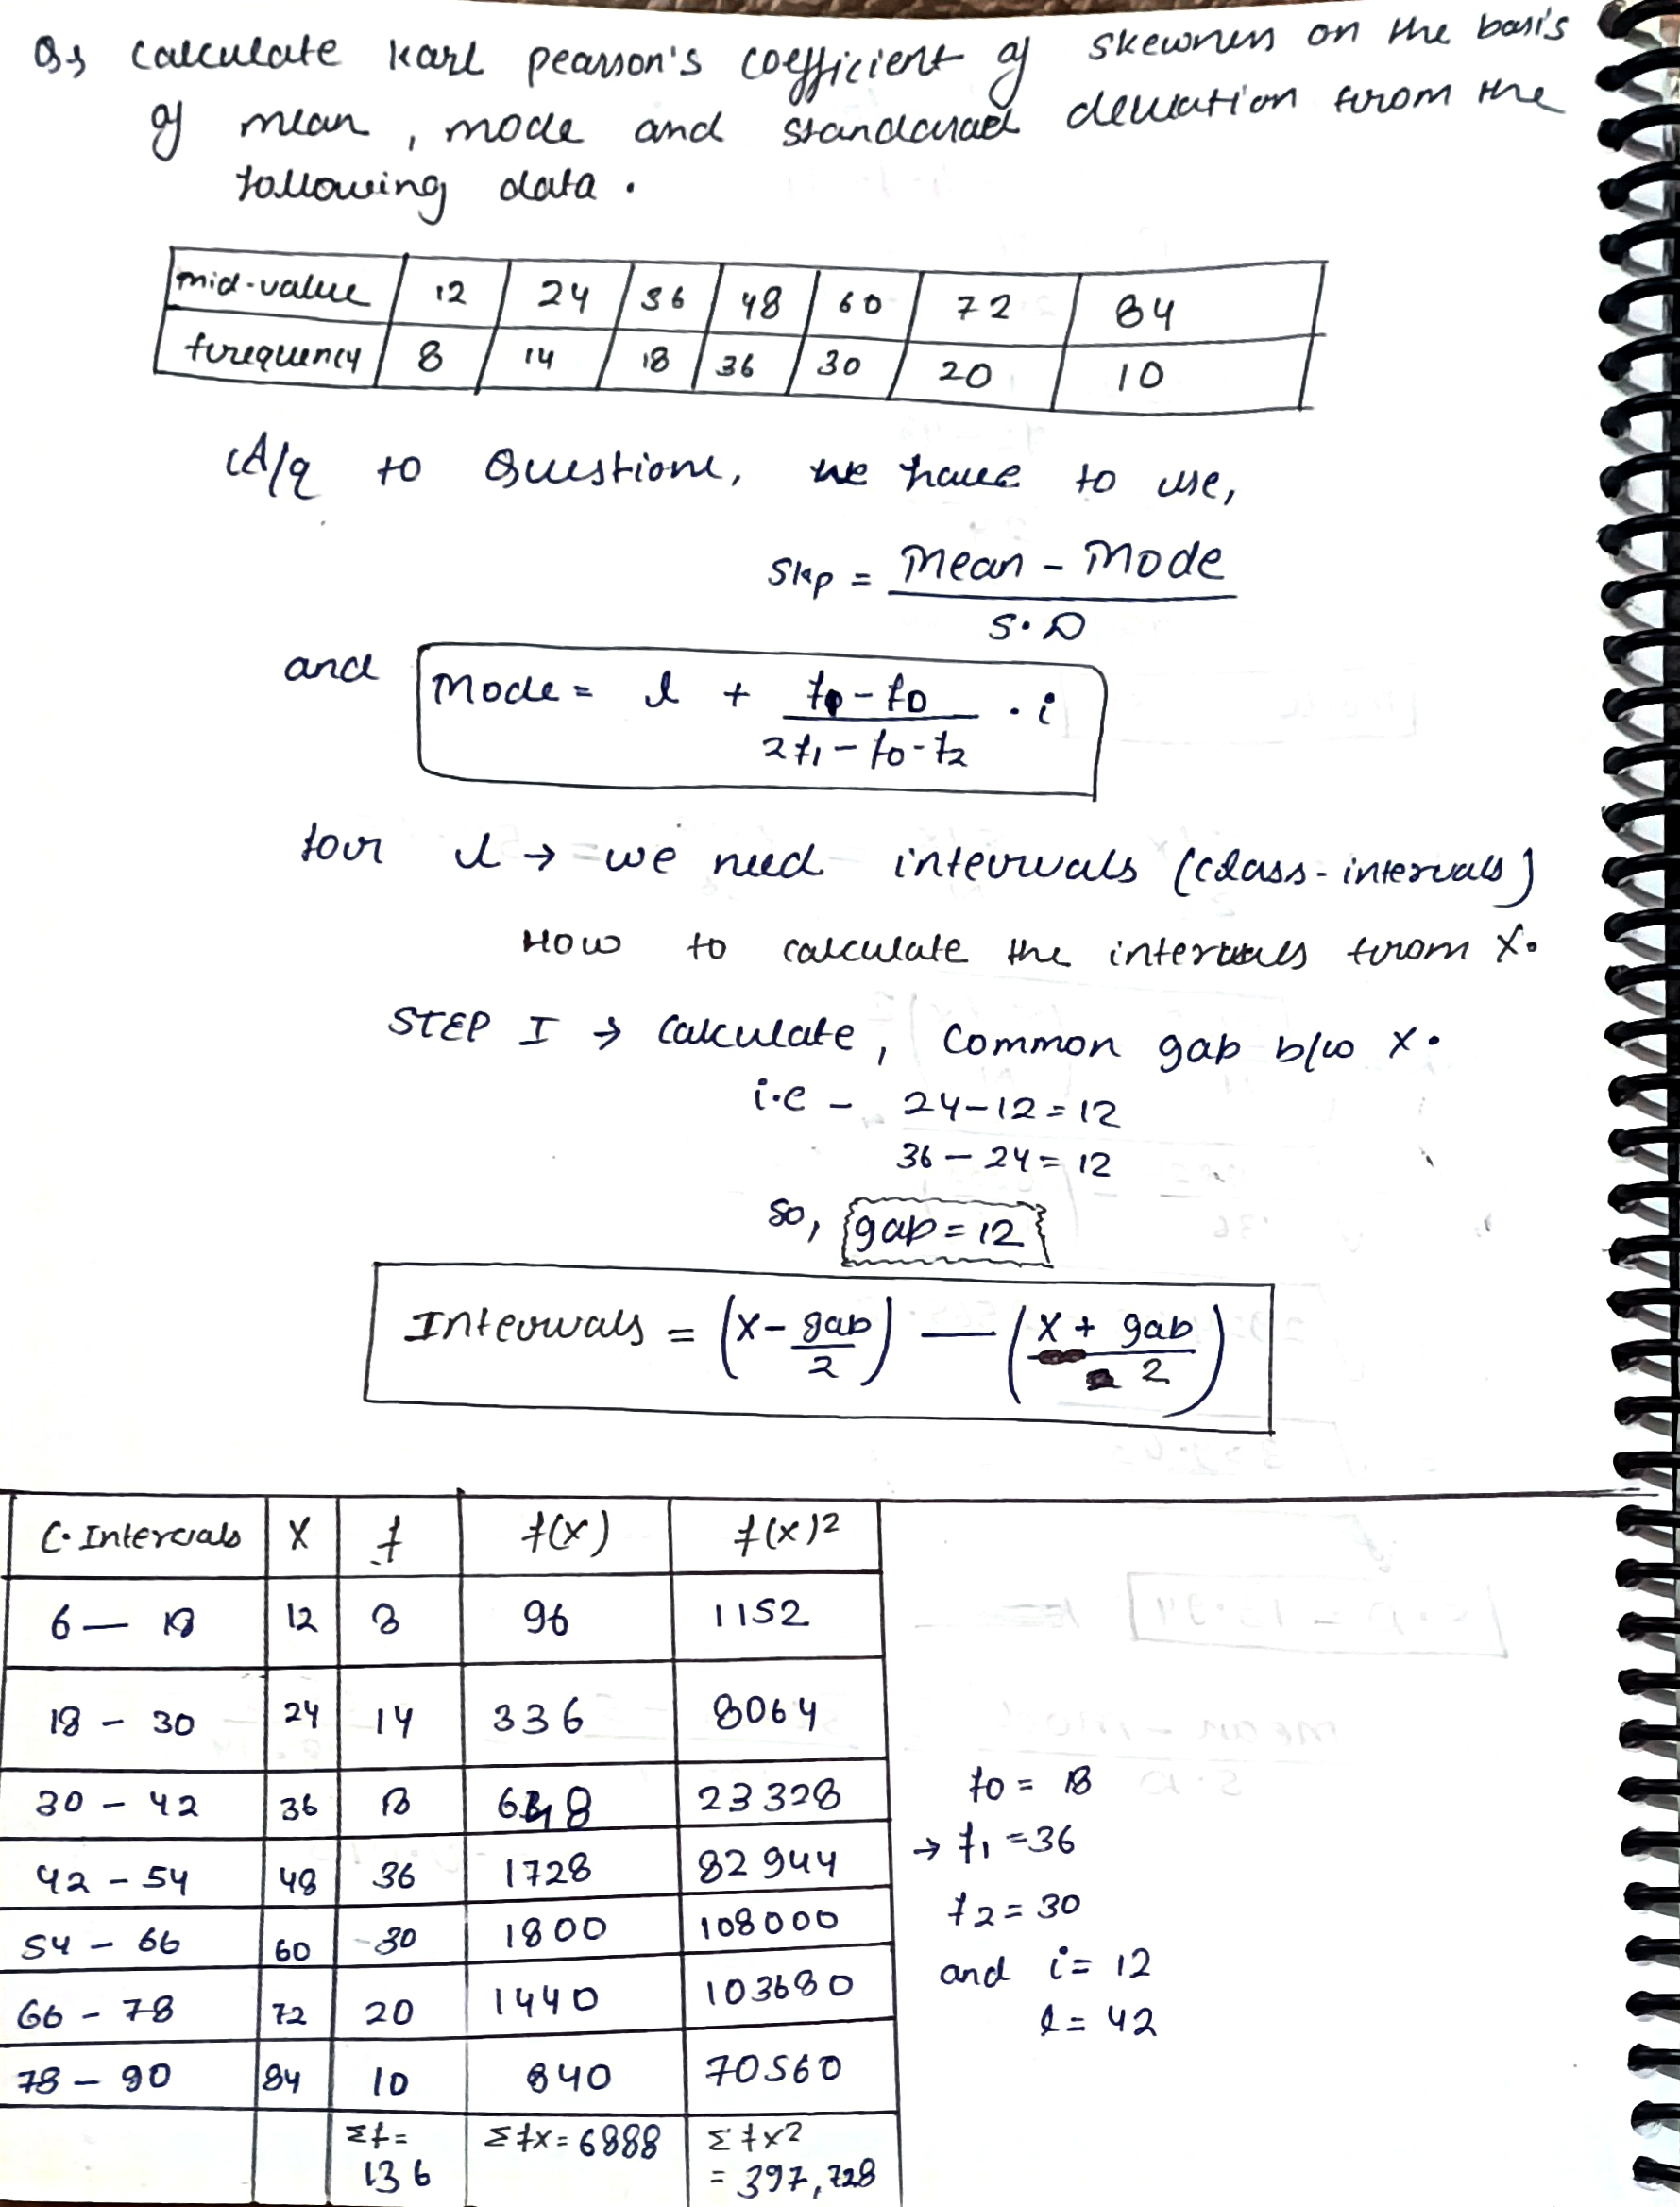 Q₅ Calculate Karl pearson's coefficient of skewness on the basis
of mean, mode and standard deviation from the
following data.
mid-value 12 24 36 48 60 72 84
frequency 8 14 18 36 30 20 10
A/q to Question, we have to use,
Skp = Mean - Mode / S.D
and Mode = l + f₁ - f₀ / 2f₁ - f₀ - f₂ . i
for l → we need intervals (class-intervals)
How to calculate the intervals from X.
STEP I → Calculate, Common gap b/w X.
i.e - 24-12=12
36-24=12
so, gap=12
Intervals = (X - gap/2) — (X + gap/2)
C. Intervals X f f(x) f(x)2
6 — 18 12 8 96 1152
18 - 30 24 14 336 8064
30 - 42 36 18 648 23328
42 - 54 48 36 1728 82944
54 - 66 60 30 1800 108000
66 - 78 72 20 1440 103680
78 - 90 84 10 840 70560
Σf = 136 Σfx = 6888 Σfx2 = 397,728
f0 = 18
→ f₁ = 36
f2 = 30
and i = 12
l = 42